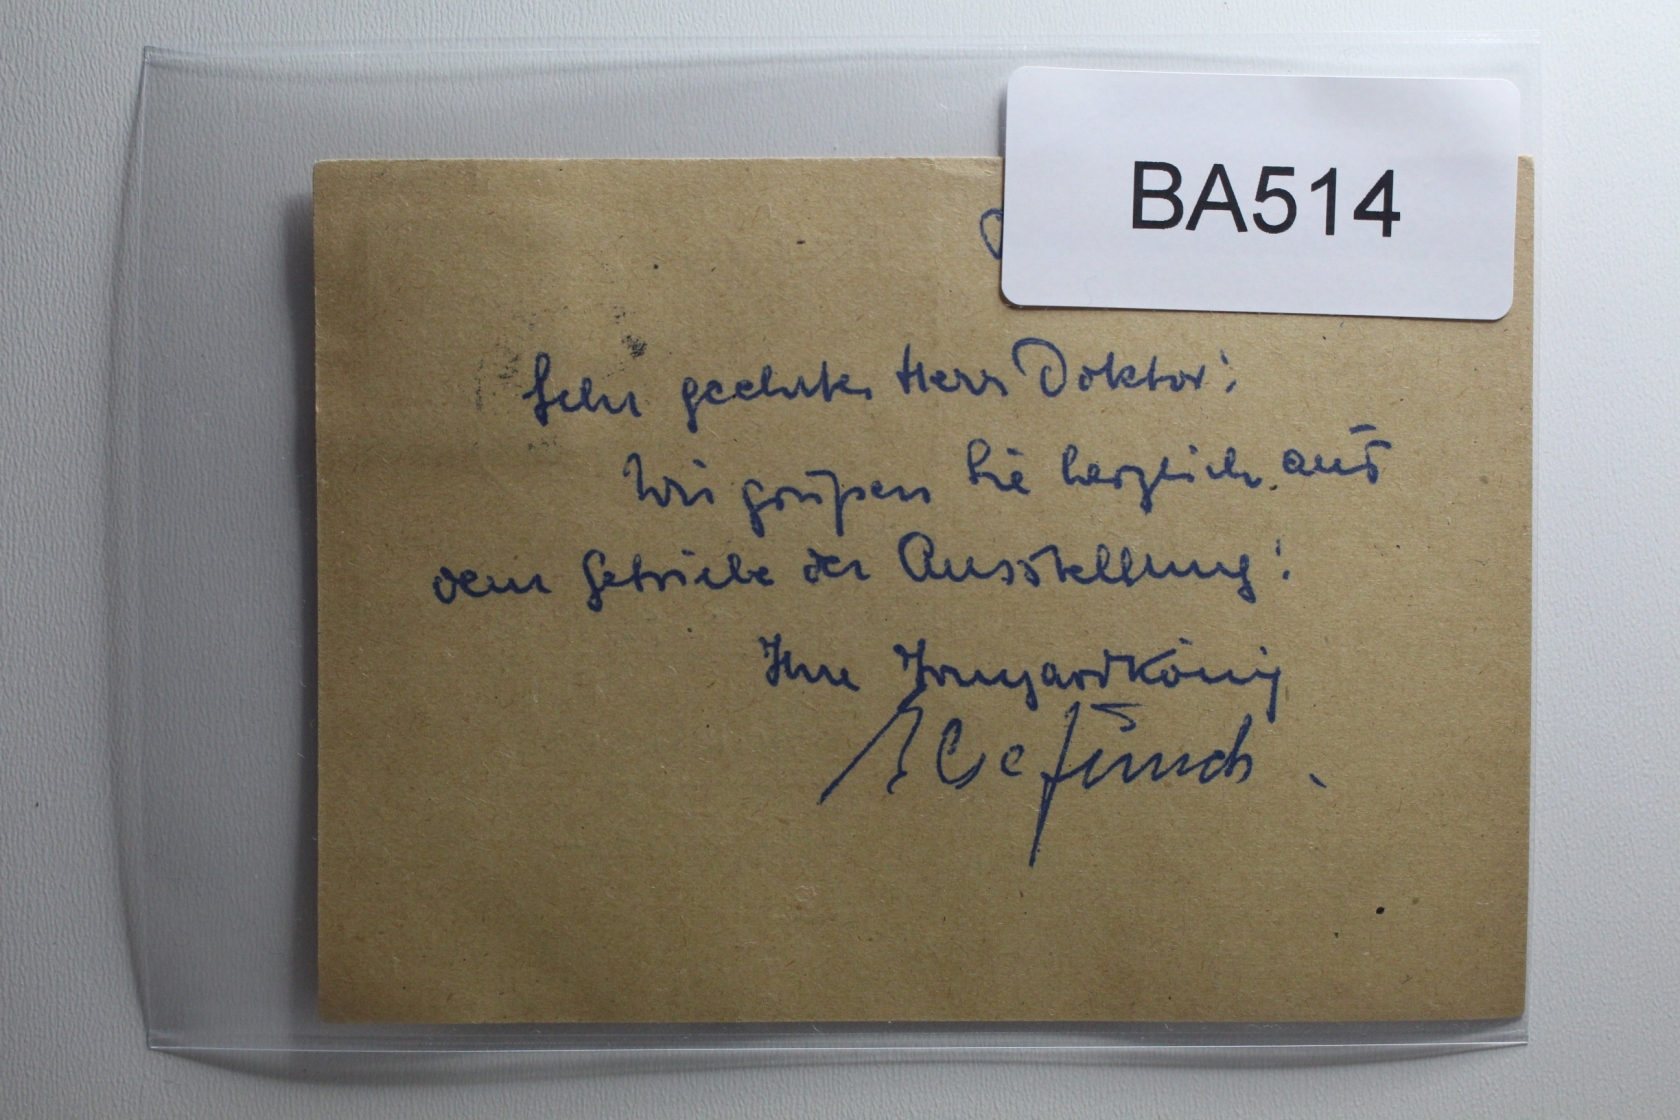 BA514
Sehr geehrter Herr Doktor!
Wir grüßen Sie herzlich aus
dem Getriebe der Ausstellung!
Ihre Irmgard König